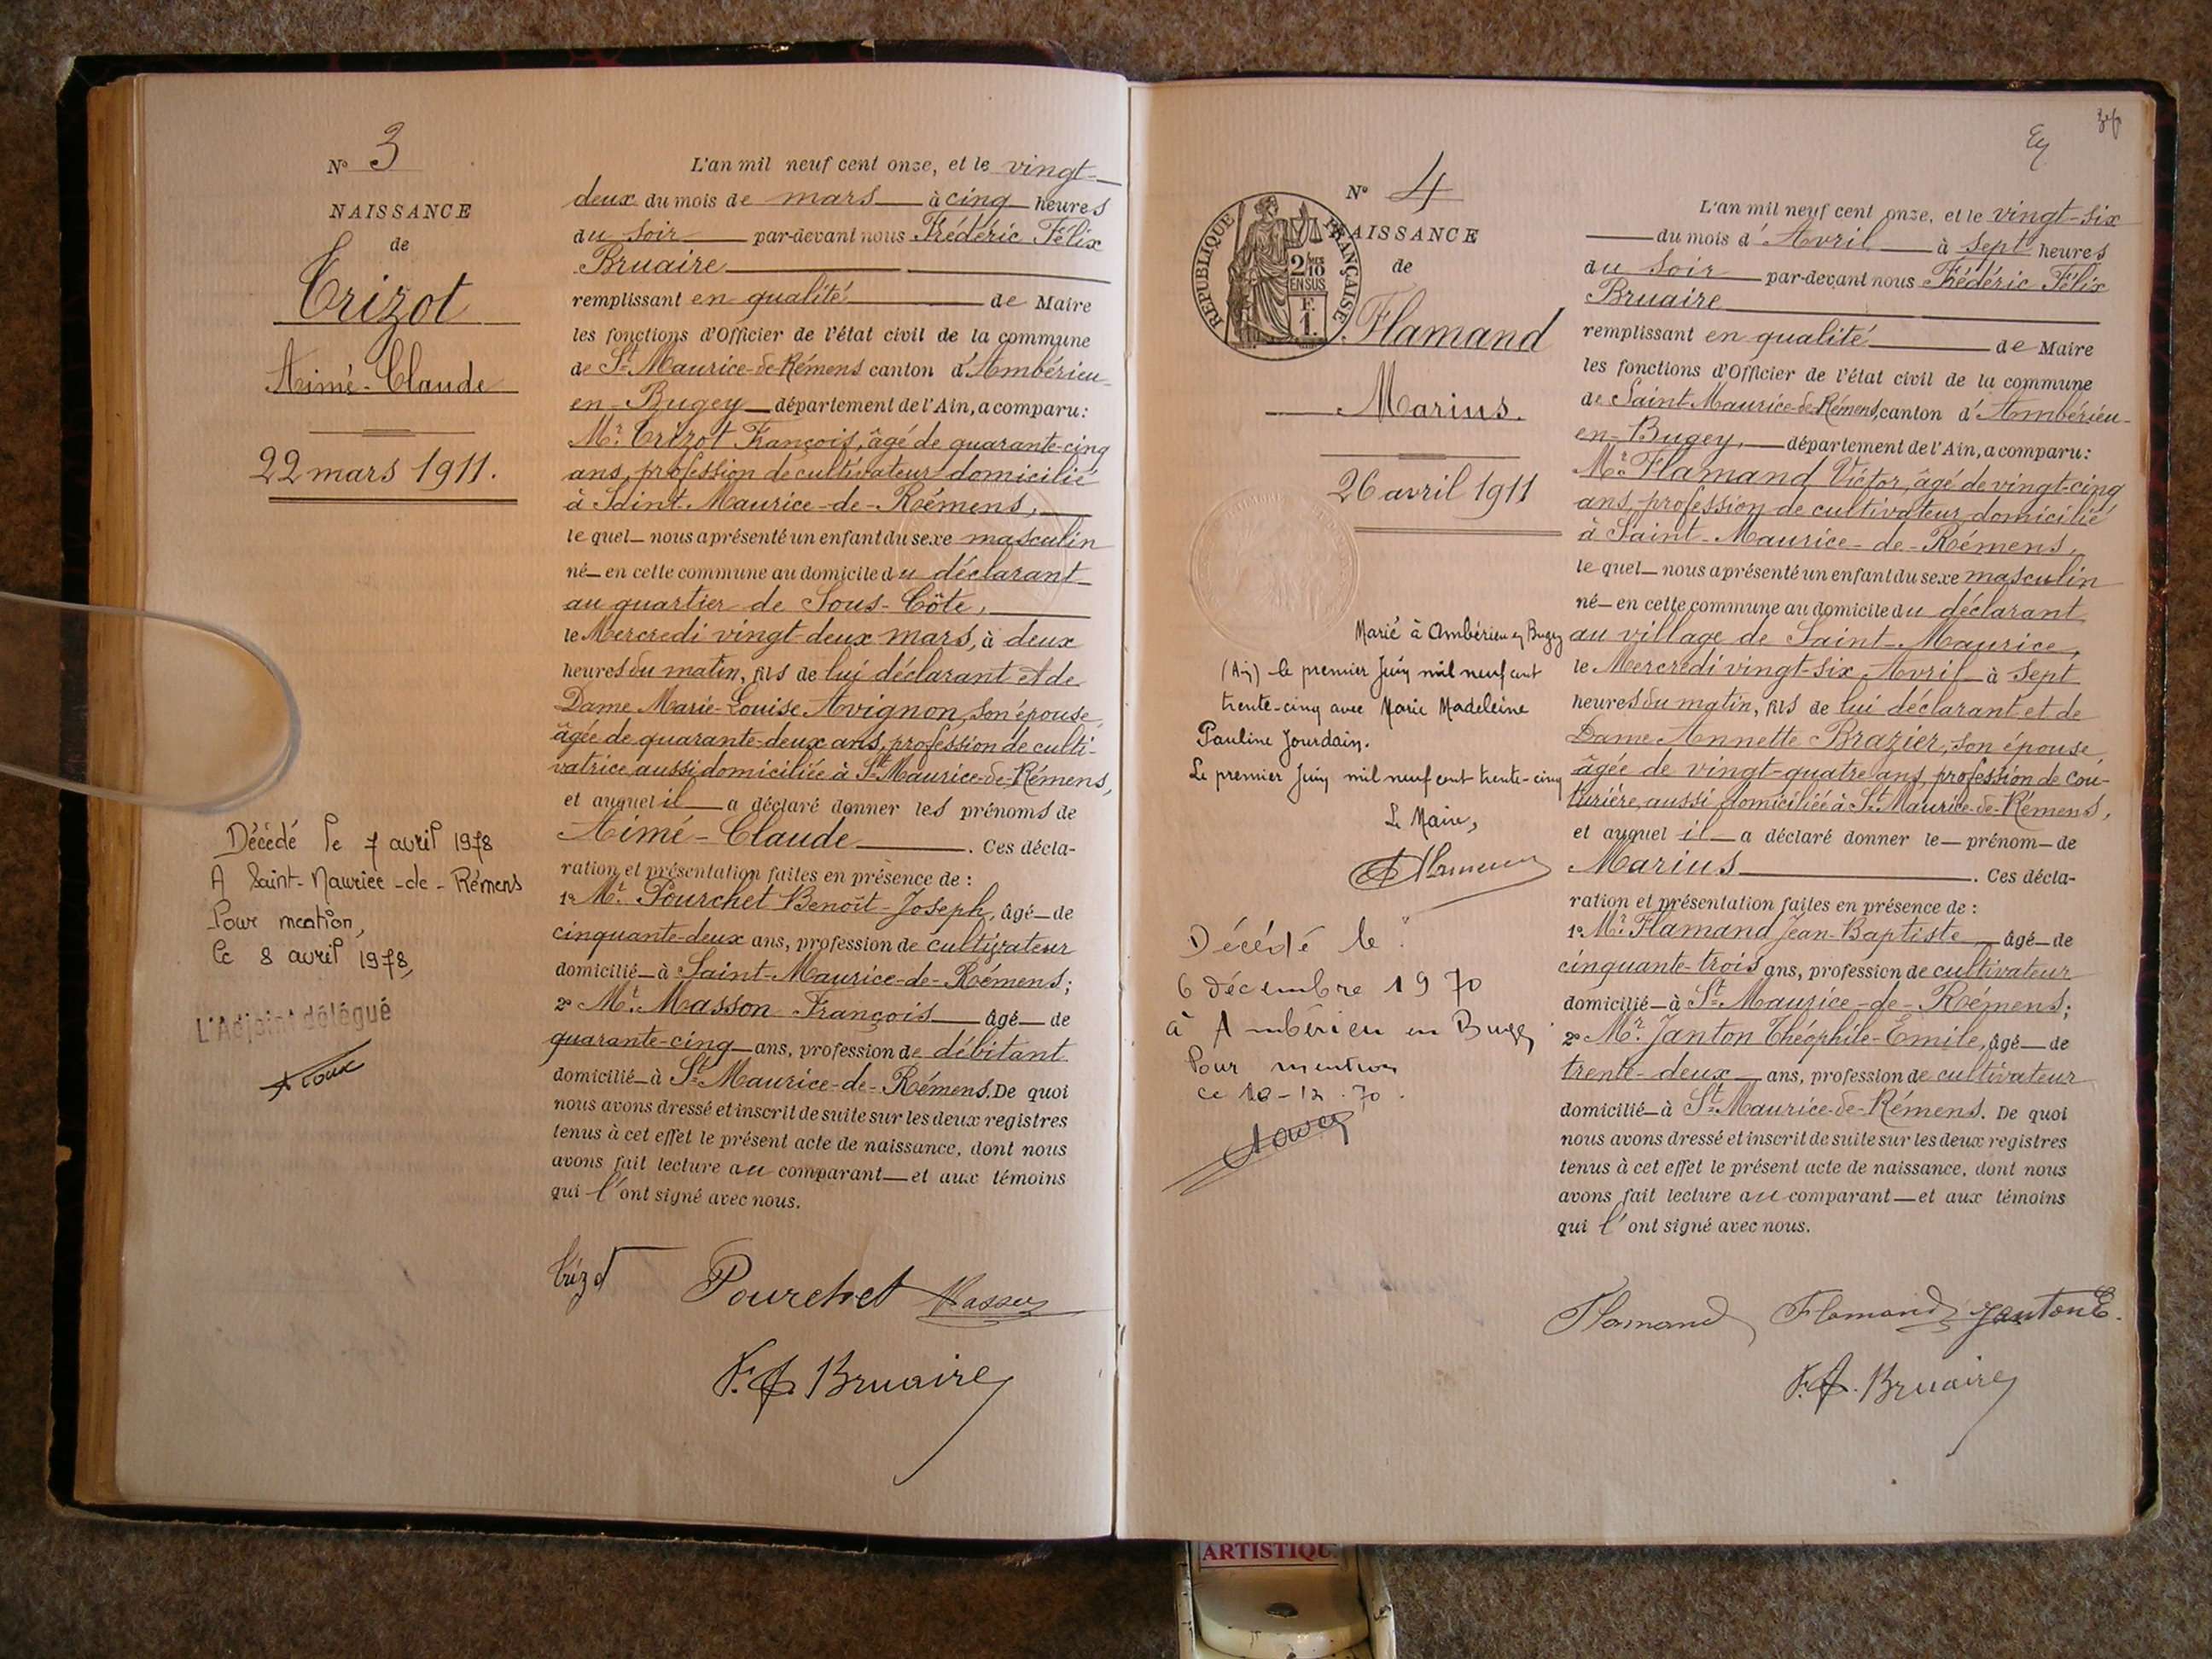 N° 3
NAISSANCE
de
Trizot
Aimé-Claude
22 mars 1911.
Décédé le 7 avril 1978
A Saint-Maurice-de-Rémens
Pour mention,
le 8 avril 1978,
L'Adjoint délégué
L'an mil neuf cent onze, et le vingt-
deux du mois de mars à cinq heures
du soir par-devant nous Frédéric Félix
Bruaire
remplissant en qualité de Maire
les fonctions d'Officier de l'état civil de la commune
de St Maurice-de-Rémens canton d'Ambérieu-
en-Bugey département de l'Ain, a comparu:
Mr. Trizot François, âgé de quarante-cinq
ans, profession de cultivateur domicilié
à Saint-Maurice-de-Rémens,
le quel nous a présenté un enfant du sexe masculin
né en cette commune au domicile du déclarant
au quartier de Sous-Côte,
le Mercredi vingt-deux mars, à deux
heures du matin, fils de lui déclarant et de
Dame Marie-Louise Avignon, son épouse,
âgée de quarante-deux ans, profession de culti-
vatrice, aussi domiciliée à St Maurice-de-Rémens,
et auquel il a déclaré donner les prénoms de
Aimé-Claude. Ces décla-
ration et présentation faites en présence de :
1° Mr. Pourchet Benoît-Joseph, âgé de
cinquante-deux ans, profession de cultivateur
domicilié à Saint-Maurice-de-Rémens;
2° Mr. Masson François âgé de
quarante-cinq ans, profession de débitant
domicilié à St Maurice-de-Rémens. De quoi
nous avons dressé et inscrit de suite sur les deux registres
tenus à cet effet le présent acte de naissance, dont nous
avons fait lecture au comparant et aux témoins
qui l'ont signé avec nous.
Trizot Pourchet Masson
F. F. Bruaire
N° 4
RÉPUBLIQUE FRANÇAISE
2/10 EN SUS
F. 1.
NAISSANCE
de
Flamand
Marius.
26 avril 1911
Marié à Ambérieu en Bugey
(Ain) le premier Juin mil neuf cent
trente-cinq avec Marie Madeleine
Pauline Jourdain.
Le premier Juin mil neuf cent trente-cinq
Le Maire,
Décédé le
6 décembre 1970
à Ambérieu en Bugey
Pour mention
ce 10-12.70.
L'an mil neuf cent onze, et le vingt-six
du mois d'Avril à sept heures
du soir par-devant nous Frédéric Félix
Bruaire
remplissant en qualité de Maire
les fonctions d'Officier de l'état civil de la commune
de Saint-Maurice-de-Rémens, canton d'Ambérieu-
en-Bugey, département de l'Ain, a comparu:
Mr. Flamand Victor, âgé de vingt-cinq
ans, profession de cultivateur, domicilié
à Saint-Maurice-de-Rémens,
le quel nous a présenté un enfant du sexe masculin
né en cette commune au domicile du déclarant
au village de Saint-Maurice,
le Mercredi vingt-six Avril à sept
heures du matin, fils de lui déclarant et de
Dame Annette Brazier, son épouse,
âgée de vingt-quatre ans, profession de cou-
turière, aussi domiciliée à St Maurice-de-Rémens,
et auquel il a déclaré donner le prénom de
Marius. Ces décla-
ration et présentation faites en présence de :
1° Mr. Flamand Jean-Baptiste âgé de
cinquante-trois ans, profession de cultivateur
domicilié à St Maurice-de-Rémens;
2° Mr. Janton Théophile-Emile, âgé de
trente-deux ans, profession de cultivateur
domicilié à St Maurice-de-Rémens. De quoi
nous avons dressé et inscrit de suite sur les deux registres
tenus à cet effet le présent acte de naissance, dont nous
avons fait lecture au comparant et aux témoins
qui l'ont signé avec nous.
Flamand Flamand Janton E.
F. F. Bruaire
ARTISTIQU